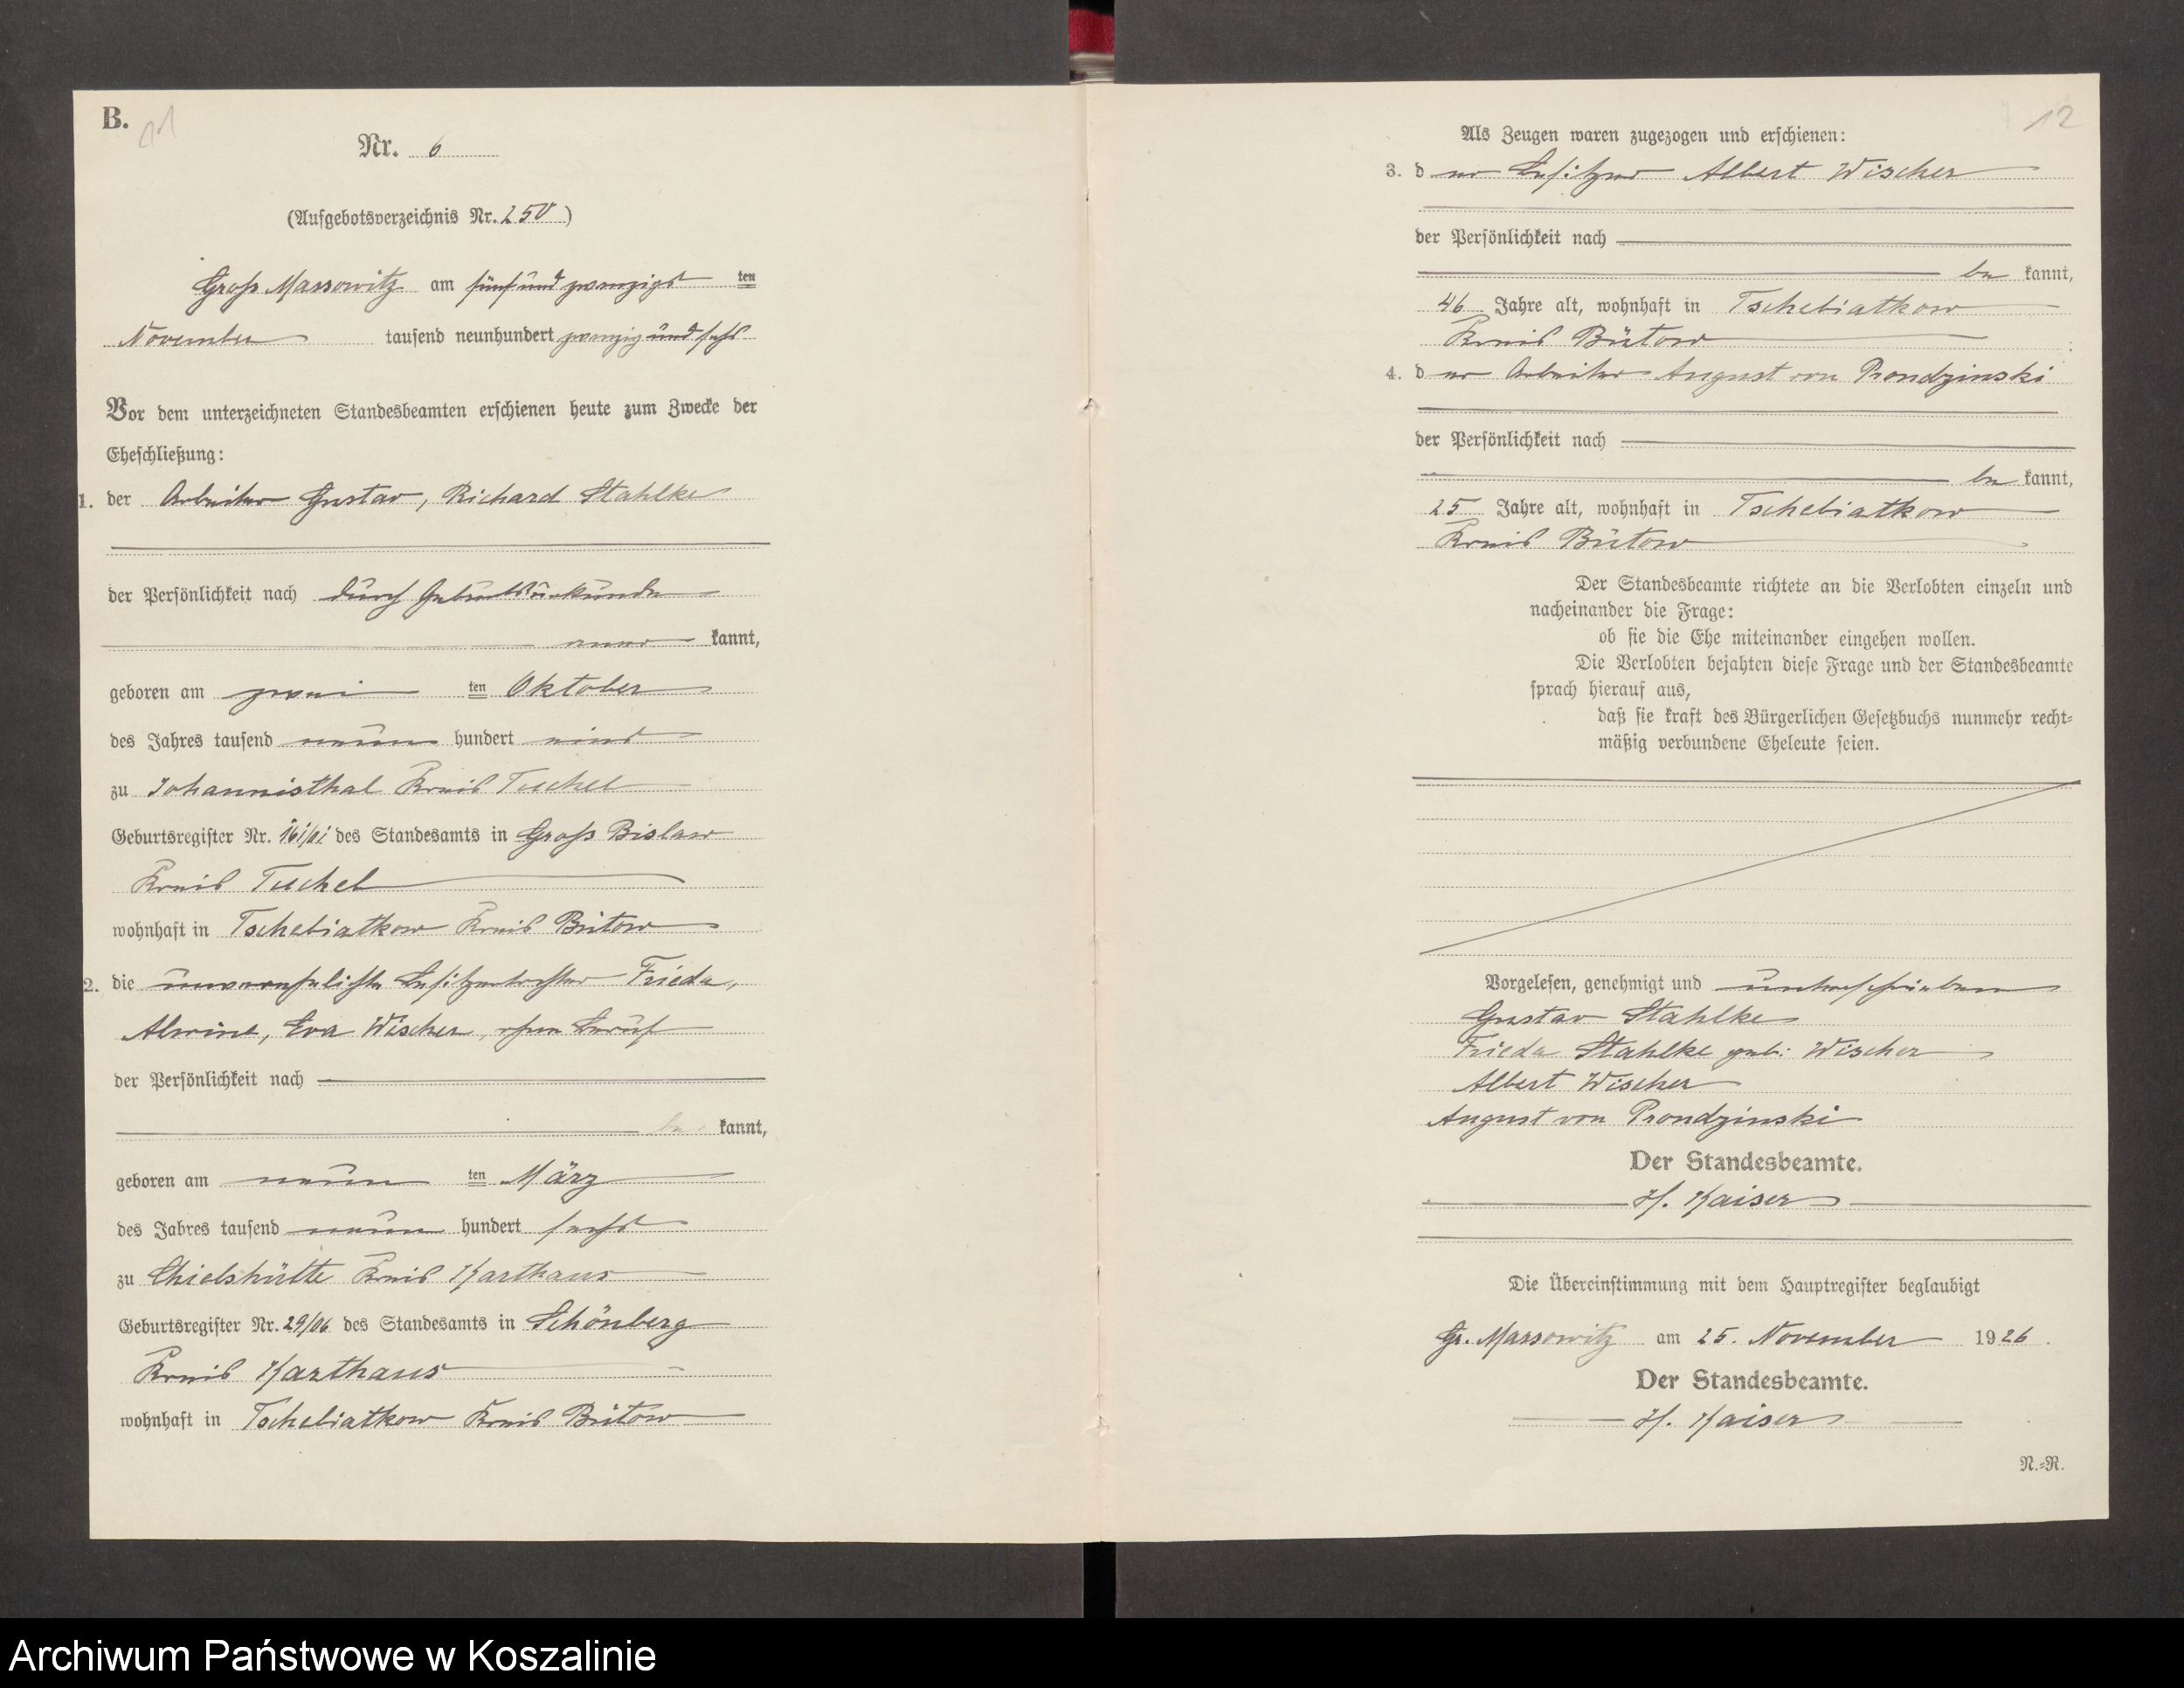 B.
11
Nr. 6
(Aufgebotsverzeichnis Nr. 250)
Groß Massowitz am fünf und zwanzigst ten
November tausend neunhundert zwanzig und sechs
Vor dem unterzeichneten Standesbeamten erschienen heute zum Zwecke der
Eheschließung:
1. der Arbeiter Gustav, Richard Stahlke
der Persönlichkeit nach durch Geburtsurkunde
aner kannt,
geboren am zwei ten Oktober
des Jahres tausend neun hundert eins
zu Johannisthal Kreis Tuchel
Geburtsregister Nr. des Standesamts in Groß Bislaw
Kreis Tuchel
wohnhaft in Tschebiatkow Kreis Bütow
2. die unverehelichte Besitzertochter Frieda,
Alwine, Eva Wischer, ohne Beruf
der Persönlichkeit nach
be kannt,
geboren am neun ten März
des Jahres tausend neun hundert sechs
zu Chielshütte Kreis Karthaus
Geburtsregister Nr. 29/06 des Standesamts in Schönberg
Kreis Karthaus
wohnhaft in Tschebiatkow Kreis Bütow
12
Als Zeugen waren zugezogen und erschienen:
3. d er Besitzer Albert Wischer
der Persönlichkeit nach
be kannt,
46 Jahre alt, wohnhaft in Tschebiatkow
Kreis Bütow
4. d er Arbeiter August von Prondzinski
der Persönlichkeit nach
be kannt,
25 Jahre alt, wohnhaft in Tschebiatkow
Kreis Bütow
Der Standesbeamte richtete an die Verlobten einzeln und
nacheinander die Frage:
ob sie die Ehe miteinander eingehen wollen.
Die Verlobten bejahten diese Frage und der Standesbeamte
sprach hierauf aus,
daß sie kraft des Bürgerlichen Gesetzbuchs nunmehr recht-
mäßig verbundene Eheleute seien.
Vorgelesen, genehmigt und unterschrieben
Gustav Stahlke
Frieda Stahlke geb. Wischer
Albert Wischer
August von Prondzinski
Der Standesbeamte.
H. Kaiser
Die Übereinstimmung mit dem Hauptregister beglaubigt
Gr. Massowitz am 25. November 1926.
Der Standesbeamte.
H. Kaiser
N.-R.
Archiwum Państwowe w Koszalinie